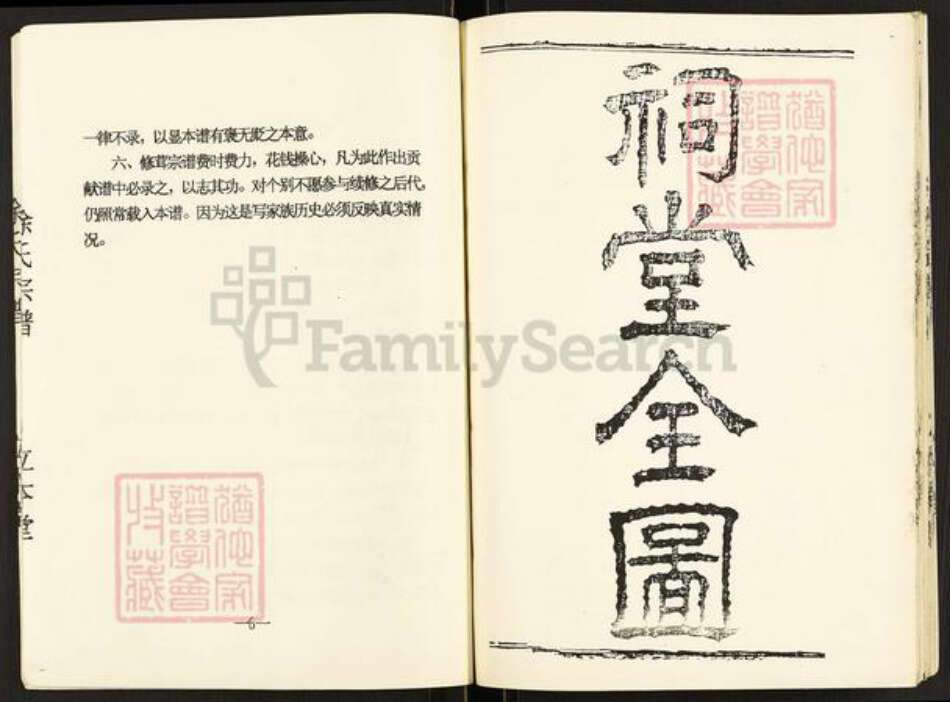 一律不录，以显本谱有褒无贬之本意。
六、修葺宗谱费时费力，花钱操心，凡为此作出贡
献谱中必录之，以志其功。对个别不愿参与续修之后代，
仍照常载入本谱。因为这是写家族历史必须反映真实情
况。
—6—
徐氏宗譜
立本堂
祠堂全圖
猶他家
譜學會
收藏
猶他家
譜學會
收藏
FamilySearch